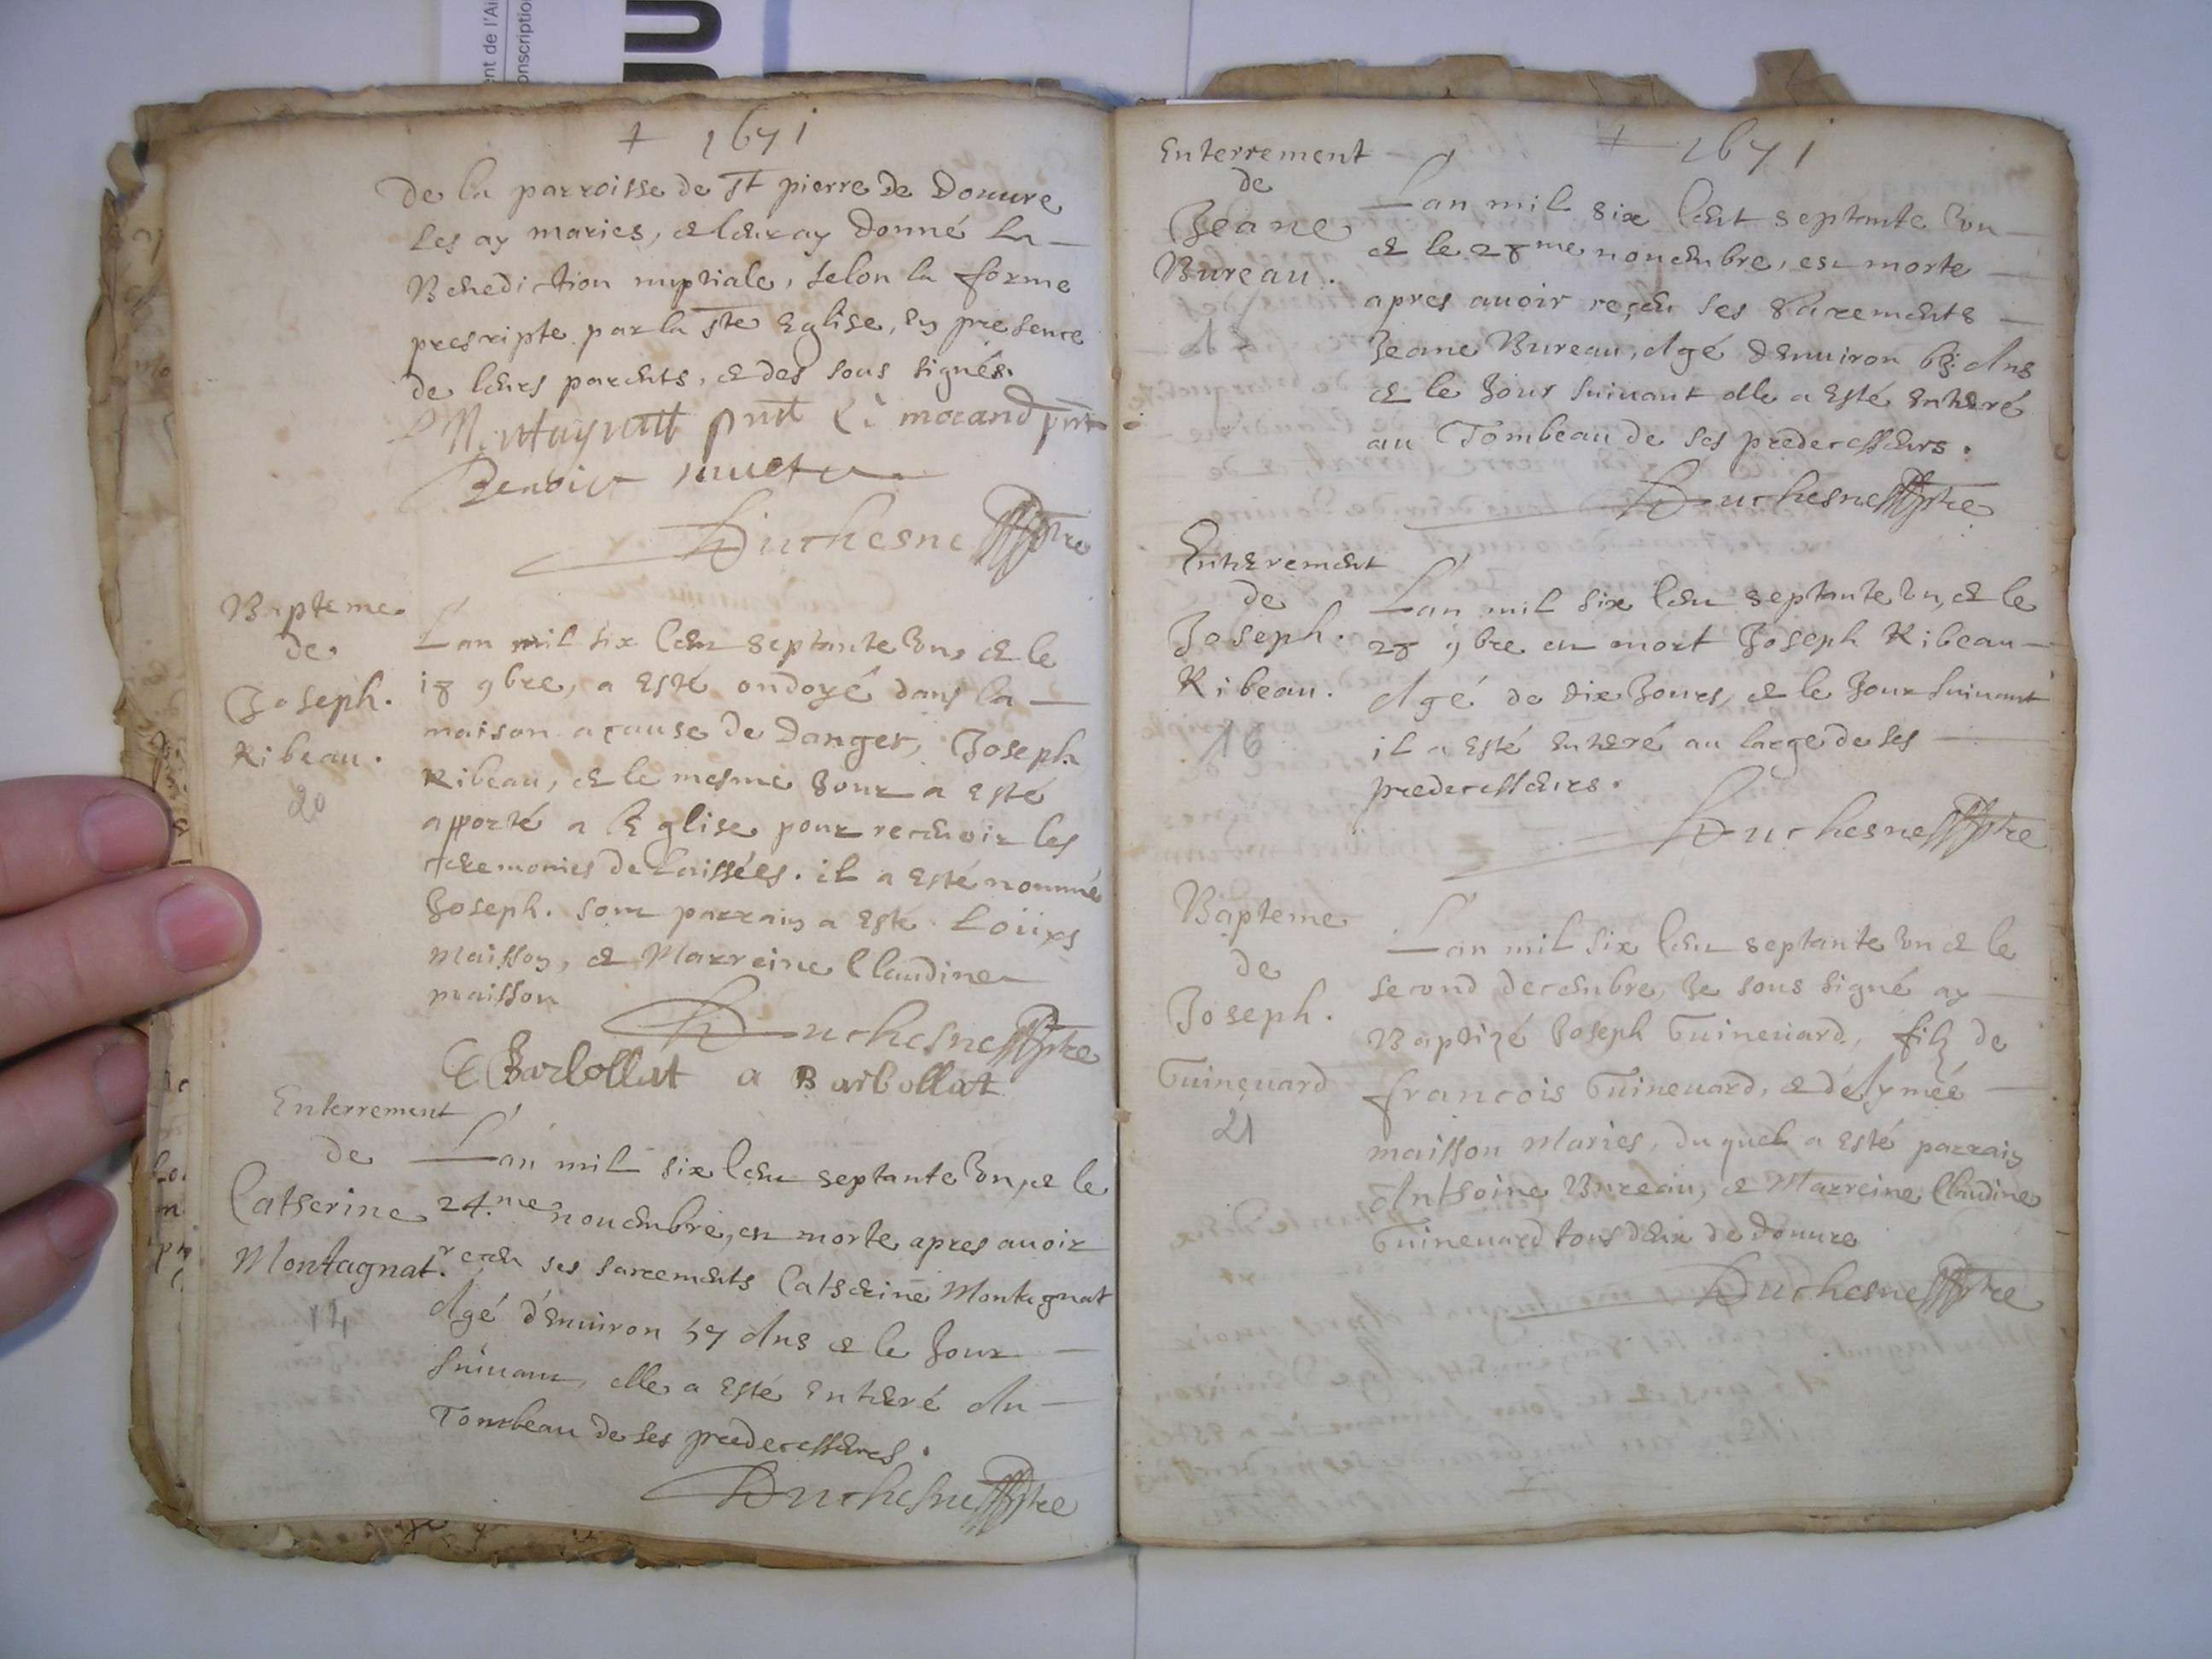 ent de l'Ai
onscription
+ 1671
De la parroisse de St pierre de Douure
les ay mariés, & leur ay donné la
Benediction nuptiale, selon la forme
prescripte par la ste Eglise, en presence
de leurs parents, & des sous signés.
Montagnatt pnt morand pnt
Benoict
Duchesne ptre
Bapteme
de
Joseph.
Ribeau.
20
Lan mil six Cen septante Un, & le
18 9bre, a Esté ondoyé dans la
maison a cause de Danger, Joseph
Ribeau, & le mesme Jour a Esté
apporté a lEglise pour receuoir les
ceremonies delaissées. il a Esté nommé
Joseph. son parrain a Esté Louys
Maisson, & Marreine Claudine
maisson
Duchesne ptre
Barbollat a Barbollat
Enterrement
de
Catherine
Montagnat.
14
Lan mil six Cen septante Un, & le
24.me nouembre, est morte apres auoir
receu ses sacrements Catherine Montagnat
Agé d'Enuiron 57 Ans & le Jour
suiuant, elle a Esté Enterré Au
Tombeau de ses predecesseurs.
Duchesne ptre
+ 1671
Enterrement
de
Jeane
Bureau.
Lan mil six Cent septante Un
& le 28me nouembre, est morte
apres auoir reçeu ses Sacrements
Jeane Bureau, Agé dEnuiron Ans
& le Jour suiuant elle a Esté Enterré
au Tombeau de ses predecesseurs.
Duchesne ptre
Enterement
de
Joseph.
Ribeau.
16
Lan mil six Cen septante Un, & le
28 9bre est mort Joseph Ribeau
Agé de dix Jours, & le Jour suiuant
il a Esté Enterré au large de ses
predecesseurs.
Duchesne ptre
Bapteme
de
Joseph.
Guineuard
21
Lan mil six Cen septante Un & le
second decembre, Je sous signé ay
Baptizé Joseph Guineuard, filz de
francois Guineuard, & d'élymée
maisson Mariés, du quel a Esté parrain
Anthoine Bureau, & Marreine Claudine
Guineuard tous deux de Douure
Duchesne ptre